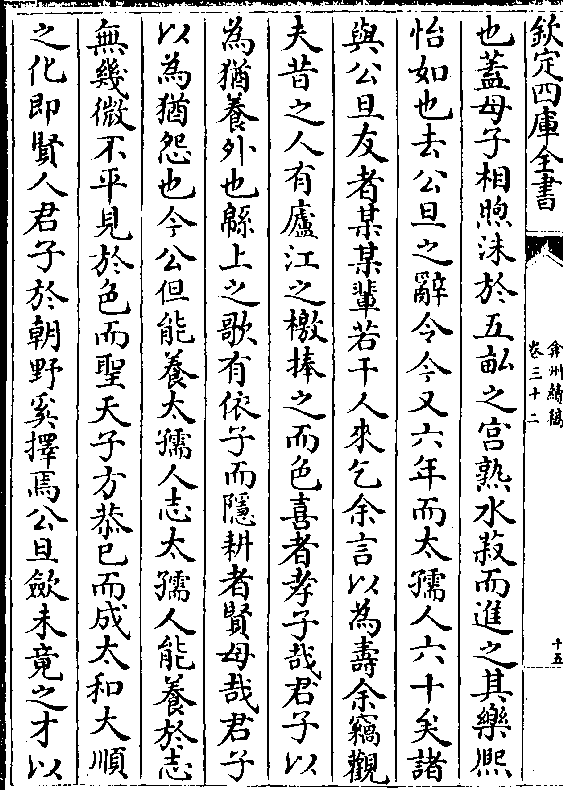 欽定四庫全書
弇州續稿
卷三十二
十五
也蓋母子相喣沬於五畝之宫熟水菽而進之其樂熈
怡如也去公旦之辭令今又六年而太孺人六十矣諸
與公旦友者某某輩若干人來乞余言以為壽余竊觀
夫昔之人有廬江之檄捧之而色喜者孝子哉君子以
為猶養外也緜上之歌有依子而隱耕者賢母哉君子
以為猶怨也今公但能養太孺人志太孺人能養於志
無幾微不平見於色而聖天子方恭已而成太和大順
之化即賢人君子於朝野奚擇焉公旦歛未竟之才以